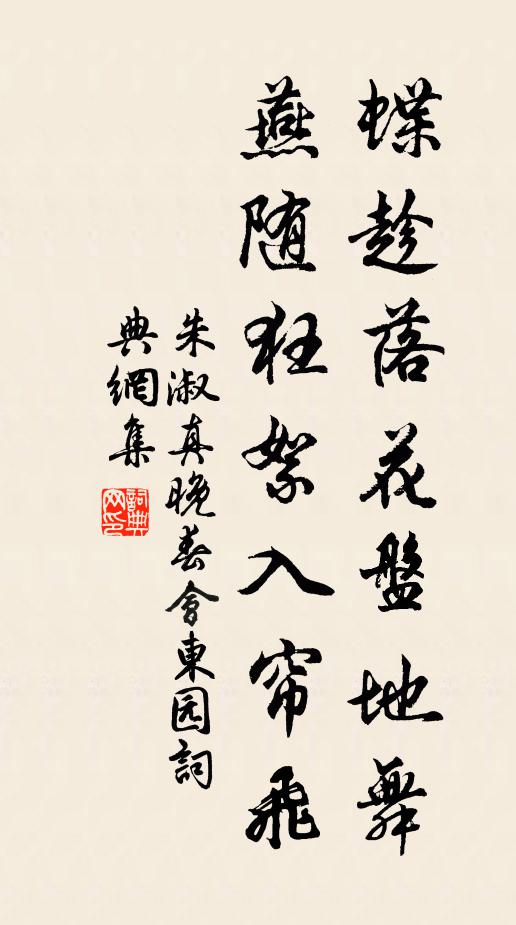 蝶趁落花盤地舞
燕随狂絮入帘飛
朱淑真晚春會東园詞
典網集
詞典网印